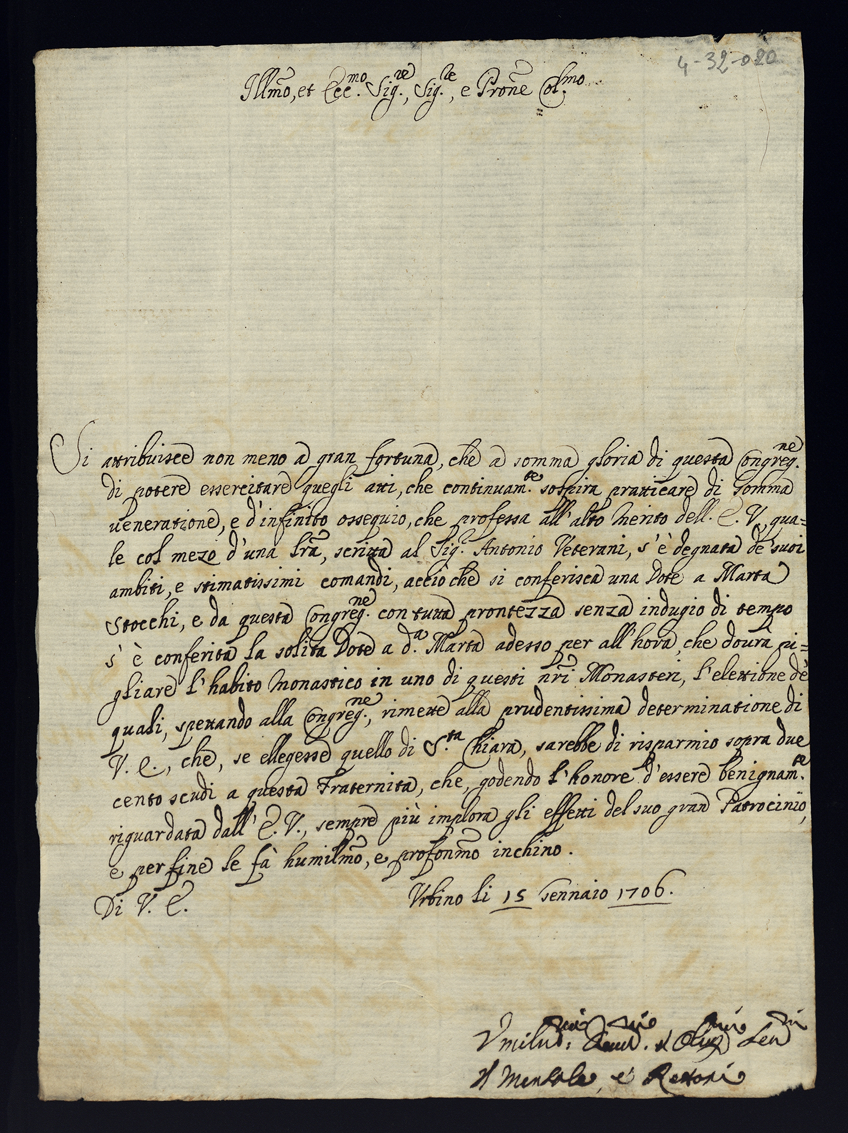 4-32-020
Illmo, et Ecc.mo Sig.re, Sig.re, e Prone Col.mo
Si attribuisce non meno a gran fortuna, che a somma gloria di questa Congreg.ne
di potere essercitare quegli atti, che continuam.te sospira pratticare di somma
veneratione, e d'infinito ossequio, che professa all'alto merito dell'E.V., qua=
le col mezo d'una lrã, scritta al Sig.r Antonio Veterani, s'è degnata de suoi
ambiti, e stimatissimi comandi, acciò che si conferisca una Dote a Marta
Stocchi, e da questa Congreg.ne con tutta prontezza senza indugio di tempo
s'è conferita la solita Dote a d.a Marta adesso per all'hora, che dovrà pi=
gliare l'habito Monastico in uno di questi nrĩ Monasteri, l'elettione dè
quali, spettando alla Congreg.ne, rimette alla prudentissima determinatione di
V. E., che, se ellegesse quello di S.ta Chiara, sarebbe di risparmio sopra due
cento scudi a questa Fraternita, che, godendo l'honore d'essere benignam.te
riguardata dall'E.V., sempre più implora gli effetti del suo gran Patrocinio,
e per fine le fà humilmo, e profonmo inchino.
Di V. E. Urbino li 15 Gennaio 1706.
Umil.mi
Il Mensale, e Rettori